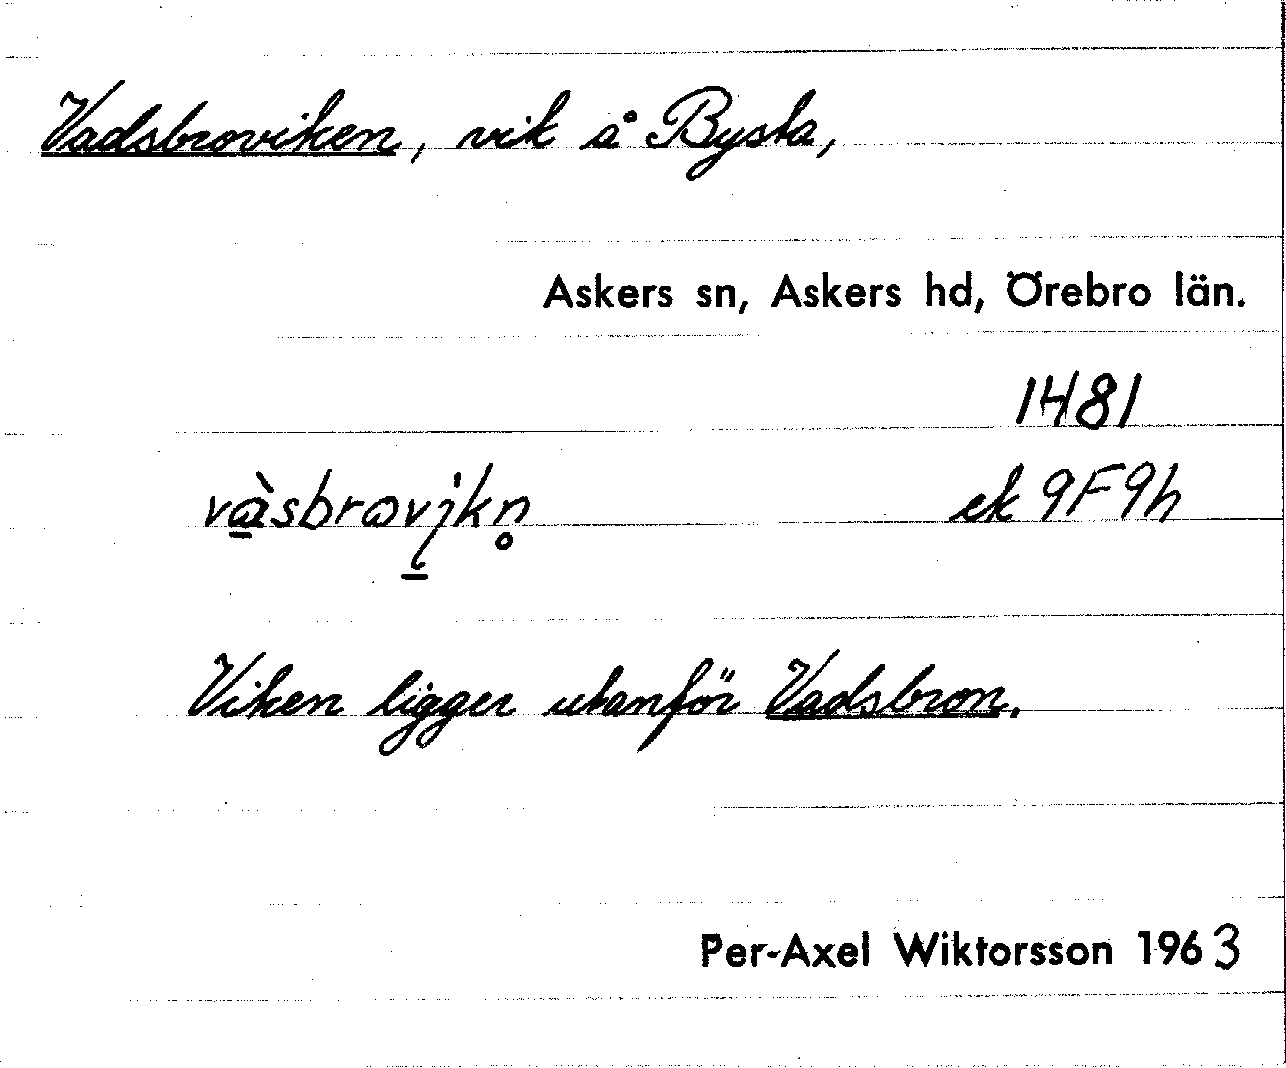 Vadsbroviken, vik å Bysta,
Askers sn, Askers hd, Örebro län.
1481
ek 9F9h
Viken ligger utanför Vadsbron.
Per-Axel Wiktorsson 1963